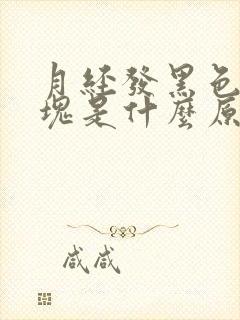 月經發黑色
塊是什麼原
咸咸